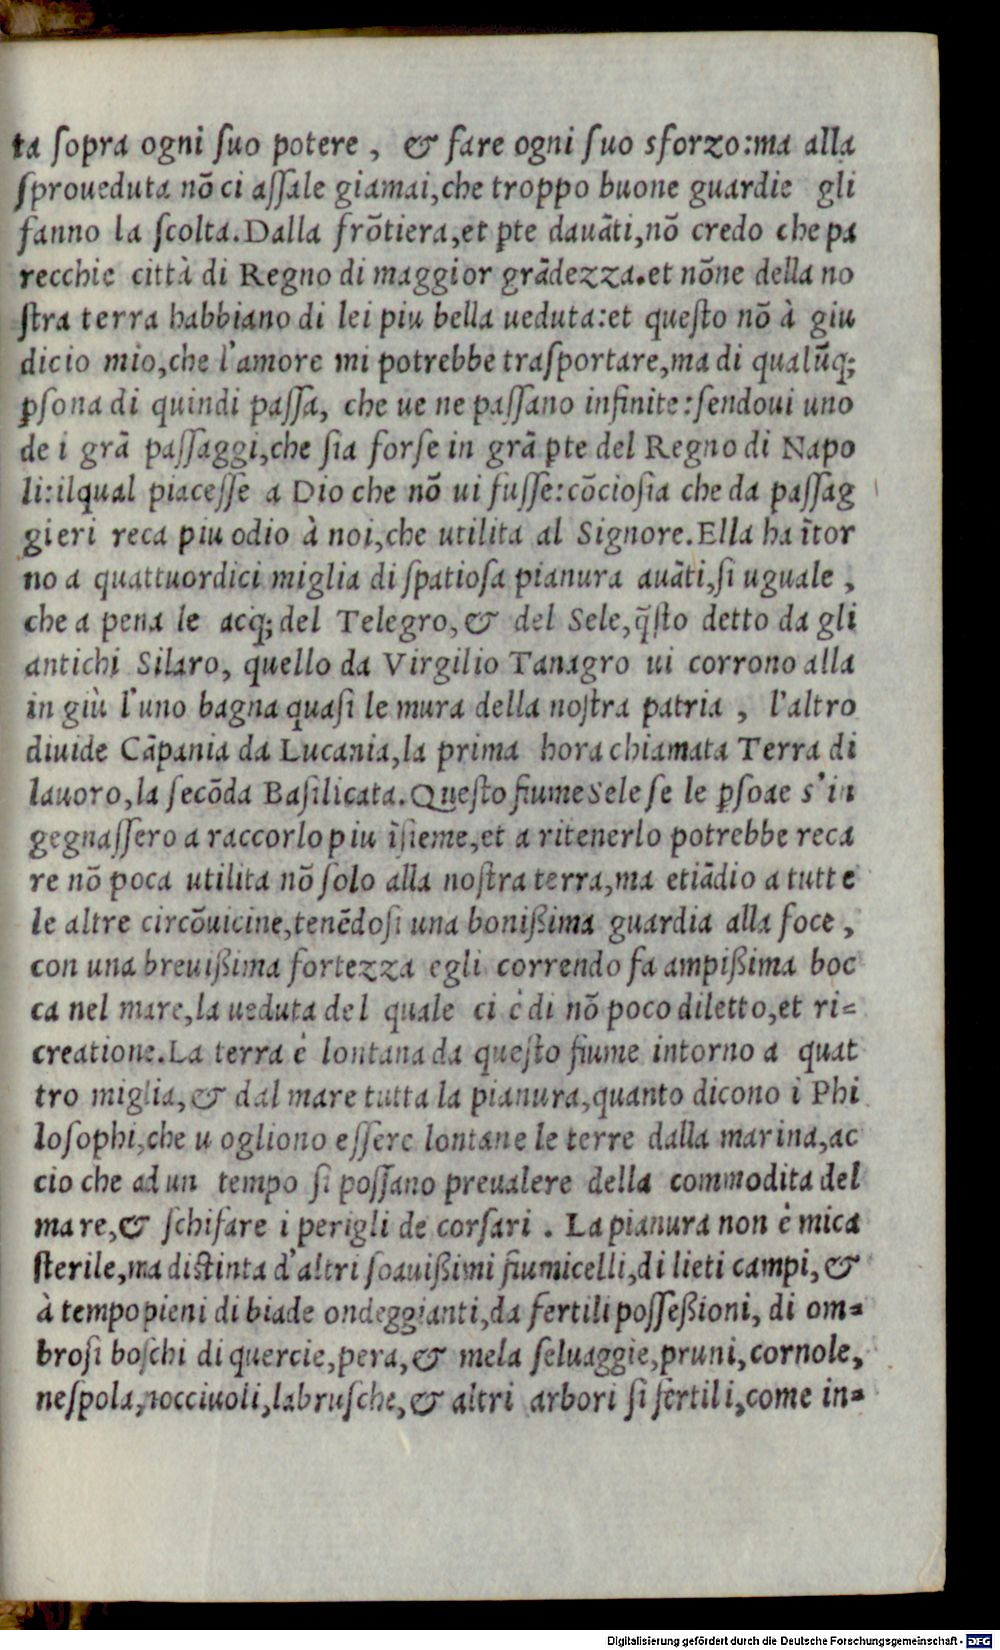 ta sopra ogni suo potere, & fare ogni suo sforzo:ma alla
sproueduta nõ ci aſſale giamai,che troppo buone guardie gli
fanno la ſcolta.Dalla frõtiera,et ꝑte dauãti,nõ credo che pa
recchie città di Regno di maggior grãdezza.et nõne della no
ſtra terra habbiano di lei piu bella ueduta:et queſto nõ à giu
dicio mio,che l'amore mi potrebbe traſportare,ma di qualũq;
ꝑſona di quindi paſſa, che ue ne paſſano infinite:ſendoui uno
de i grã paſſaggi,che ſia forſe in grã ꝑte del Regno di Napo
li:ilqual piaceſſe a Dio che nõ ui fuſſe:cõcioſia che da paſſag
gieri reca piu odio à noi,che utilita al Signore.Ella ha ĩtor
no a quattuordici miglia di ſpatioſa pianura auãti,ſi uguale,
che a pena le acq; del Telegro,& del Sele,q̃ſto detto da gli
antichi Silaro, quello da Virgilio Tanagro ui corrono alla
in giù l'uno bagna quaſi le mura della noſtra patria, l'altro
diuide Cãpania da Lucania,la prima hora chiamata Terra di
lauoro,la ſecõda Baſilicata.Queſto fiume Sele ſe le ꝑſoae s'in
gegnaſſero a raccorlo piu ĩſieme,et a ritenerlo potrebbe reca
re nõ poca utilita nõ ſolo alla noſtra terra,ma etiãdio a tutte
le altre circõuicine,tenẽdoſi una bonißima guardia alla foce,
con una breuißima fortezza egli correndo fa ampißima boc
ca nel mare,la ueduta del quale ci è di nõ poco diletto,et ri=
creatione.La terra è lontana da queſto fiume intorno a quat
tro miglia,& dal mare tutta la pianura,quanto dicono i Phi
loſophi,che uogliono eſſere lontane le terre dalla marina,ac
cio che ad un tempo ſi poſſano preualere della commodita del
mare,& ſchifare i perigli de corſari. La pianura non è mica
ſterile,ma diſtinta d'altri ſoauißimi fiumicelli,di lieti campi,&
à tempo pieni di biade ondeggianti,da fertili poſſeßioni, di om=
broſi boſchi di quercie,pera,& mela ſeluaggie,pruni,cornole,
neſpola,nocciuoli,labruſche,& altri arbori ſi fertili,come in=
Digitalisierung gefördert durch die Deutsche Forschungsgemeinschaft - DFG